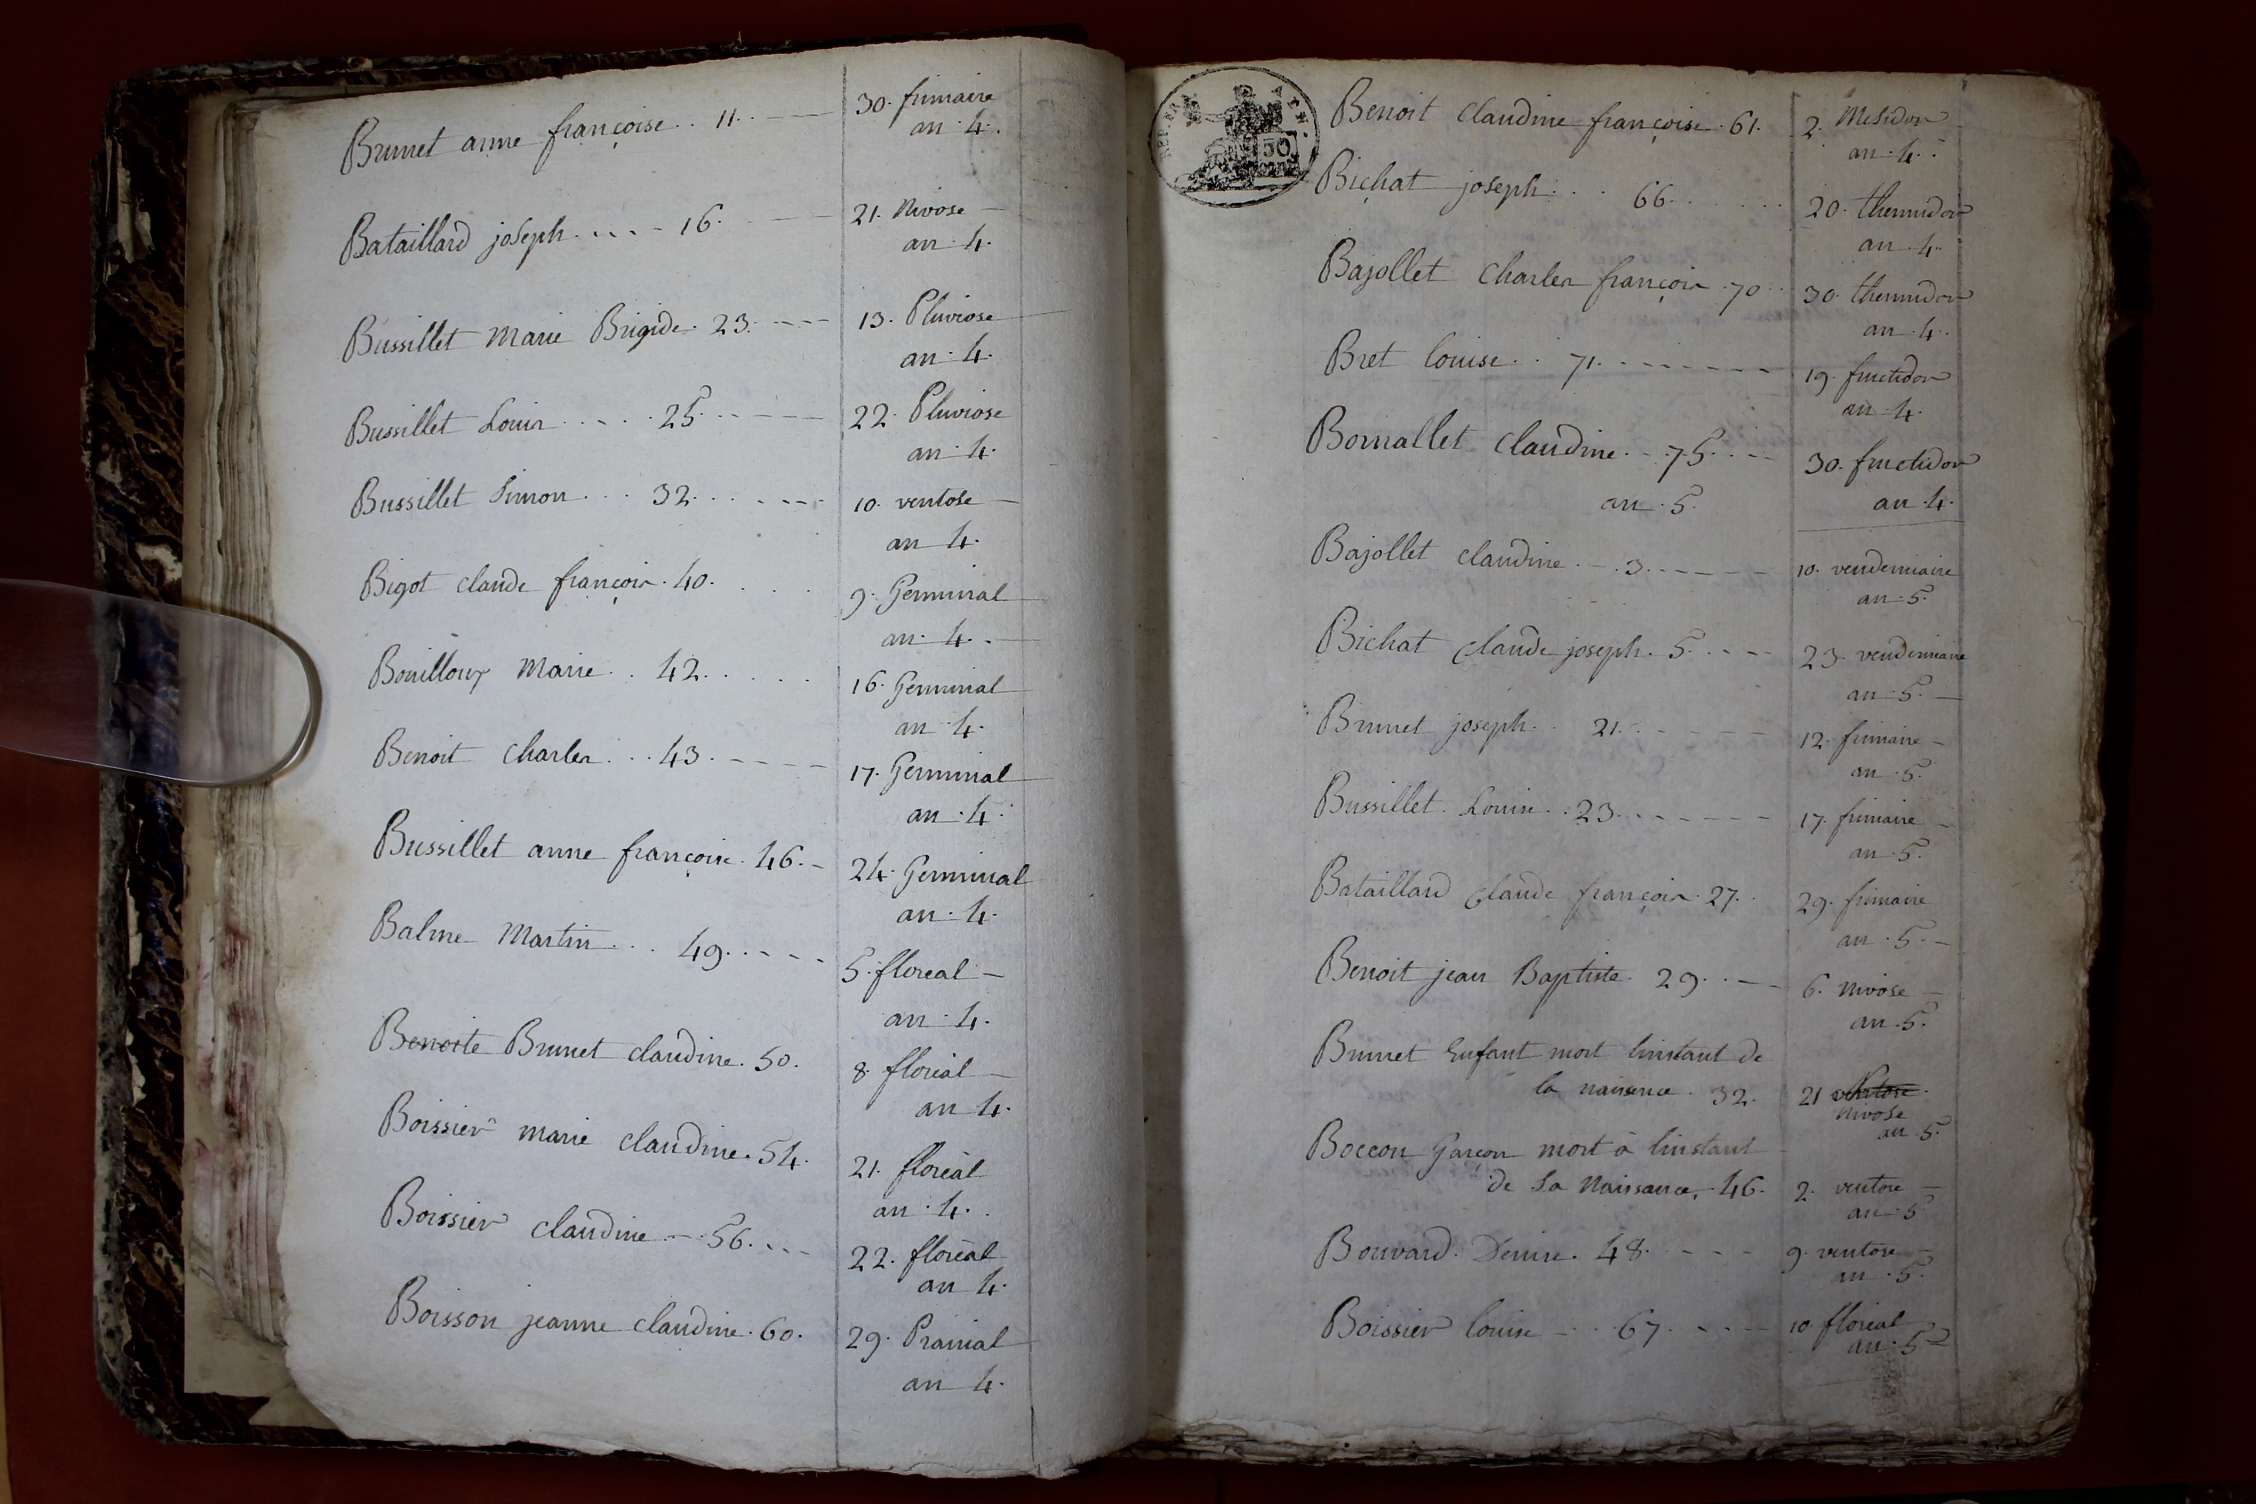 Brunet anne françoise . 11 . 30. frimaire
an . 4.
Bataillard joseph .... 16. 21. Nivose
an . 4.
Bussillet Marie Brigide . 23. 13. Pluviose
an . 4.
Bussillet Louis .... 25. 22. Pluviose
an . 4.
Bussillet Simon ... 32. 10. ventose
an 4.
Bigot claude françois . 40. 9. Germinal
an . 4.
Bouilloux Marie .. 42. 16. Germinal
an . 4.
Benoit charles ... 43. 17. Germinal
an . 4.
Bussillet anne françoise . 46. 24. Germinal
an . 4.
Balme Martin ... 49. 5. floreal
an . 4.
Benoite Brunet claudine . 50. 8. floréal
an 4.
Boissier marie claudine . 54. 21. floréal
an . 4.
Boissier claudine .. 56. 22. floréal
an 4.
Boisson jeanne claudine . 60. 29. Prairial
an 4.
REP. FRA
50
Benoit claudine françoise . 61. 2. Mesidor
an . 4.
Bichat joseph ... 66. 20. thermidor
an . 4.
Bajollet charles françois . 70 30. thermidor
an . 4.
Bret louise .. 71. 19. fructidor
an . 4.
Bornallet claudine .. 75. 30. fructidor
an . 5. an . 4.
Bajollet claudine .. 3. 10. vendemiaire
an . 5.
Bichat claude joseph . 5. 23. vendemiaire
an . 5.
Brunet joseph .. 21. 12. frimaire
an . 5.
Bussillet . Louise .. 23. 17. frimaire
an . 5.
Bataillard claude françois . 27. 29. frimaire
an . 5.
Benoit jean Baptiste . 29. 6. Nivose
an . 5.
Brunet Enfant mort linstant de
la naisence . 32. 21 ventose
nivose
an 5.
Boccon Garçon mort à linstant
de La Naissance, 46. 2. ventose
an . 5
Bouvard . Denise . 48. 9. ventose
an . 5.
Boissier louise ... 67. 10. floréal
an . 5